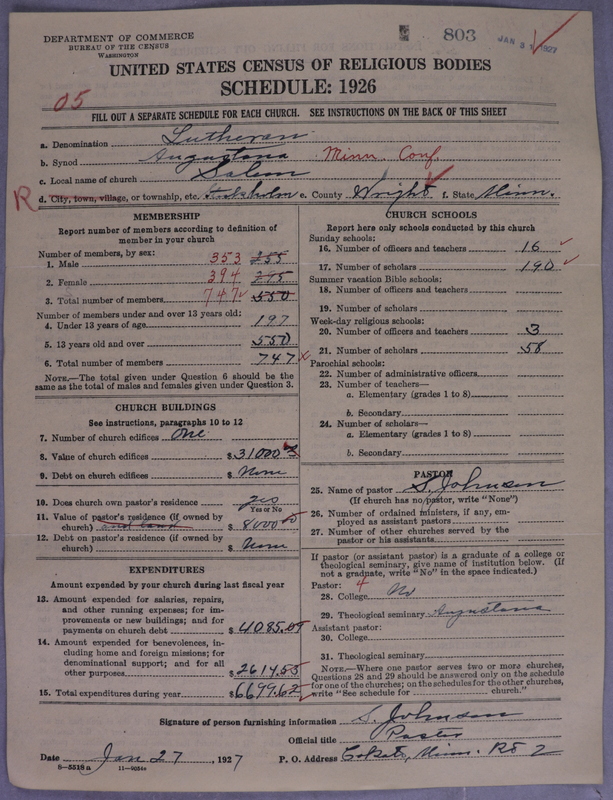 DEPARTMENT OF COMMERCE
BUREAU OF THE CENSUS
WASHINGTON
803
JAN 31 1927
UNITED STATES CENSUS OF RELIGIOUS BODIES
SCHEDULE: 1926
05
FILL OUT A SEPARATE SCHEDULE FOR EACH CHURCH. SEE INSTRUCTIONS ON THE BACK OF THIS SHEET
a. Denomination Lutheran
b. Synod Augustana Minn. Conf.
c. Local name of church Salem
R d. City, town, village, or township, etc. Stockholm e. County Wright f. State Minn.
MEMBERSHIP
Report number of members according to definition of
member in your church
Number of members, by sex:
1. Male 353 255
2. Female 394 295
3. Total number of members 747 550
Number of members under and over 13 years old:
4. Under 13 years of age 197
5. 13 years old and over 550
6. Total number of members 747
NOTE.—The total given under Question 6 should be the
same as the total of males and females given under Question 3.
CHURCH BUILDINGS
See instructions, paragraphs 10 to 12
7. Number of church edifices One
8. Value of church edifices $31000
9. Debt on church edifices $ None
10. Does church own pastor's residence yes
Yes or No
11. Value of pastor's residence (if owned by
church) and land $8000.00
12. Debt on pastor's residence (if owned by
church) $ None
EXPENDITURES
Amount expended by your church during last fiscal year
13. Amount expended for salaries, repairs,
and other running expenses; for im-
provements or new buildings; and for
payments on church debt $4085.09
14. Amount expended for benevolences, in-
cluding home and foreign missions; for
denominational support; and for all
other purposes $2614.53
15. Total expenditures during year $6699.62
CHURCH SCHOOLS
Report here only schools conducted by this church
Sunday schools:
16. Number of officers and teachers 16
17. Number of scholars 190
Summer vacation Bible schools:
18. Number of officers and teachers
19. Number of scholars
Week-day religious schools:
20. Number of officers and teachers 3
21. Number of scholars 58
Parochial schools:
22. Number of administrative officers
23. Number of teachers—
a. Elementary (grades 1 to 8)
b. Secondary
24. Number of scholars—
a. Elementary (grades 1 to 8)
b. Secondary
PASTOR
25. Name of pastor S. Johnson
(If church has no pastor, write "None")
26. Number of ordained ministers, if any, em-
ployed as assistant pastors
27. Number of other churches served by the
pastor or his assistants
If pastor (or assistant pastor) is a graduate of a college or
theological seminary, give name of institution below. (If
not a graduate, write "No" in the space indicated.)
Pastor: 4
28. College No
29. Theological seminary Augustana
Assistant pastor:
30. College
31. Theological seminary
NOTE.—Where one pastor serves two or more churches,
Questions 28 and 29 should be answered only on the schedule
for one of the churches; on the schedules for the other churches,
write "See schedule for church."
Signature of person furnishing information S. Johnson
Official title Pastor
Date Jan 27, 1927 P. O. Address Cokato, Minn. R 2
8—5518a 11—9054a